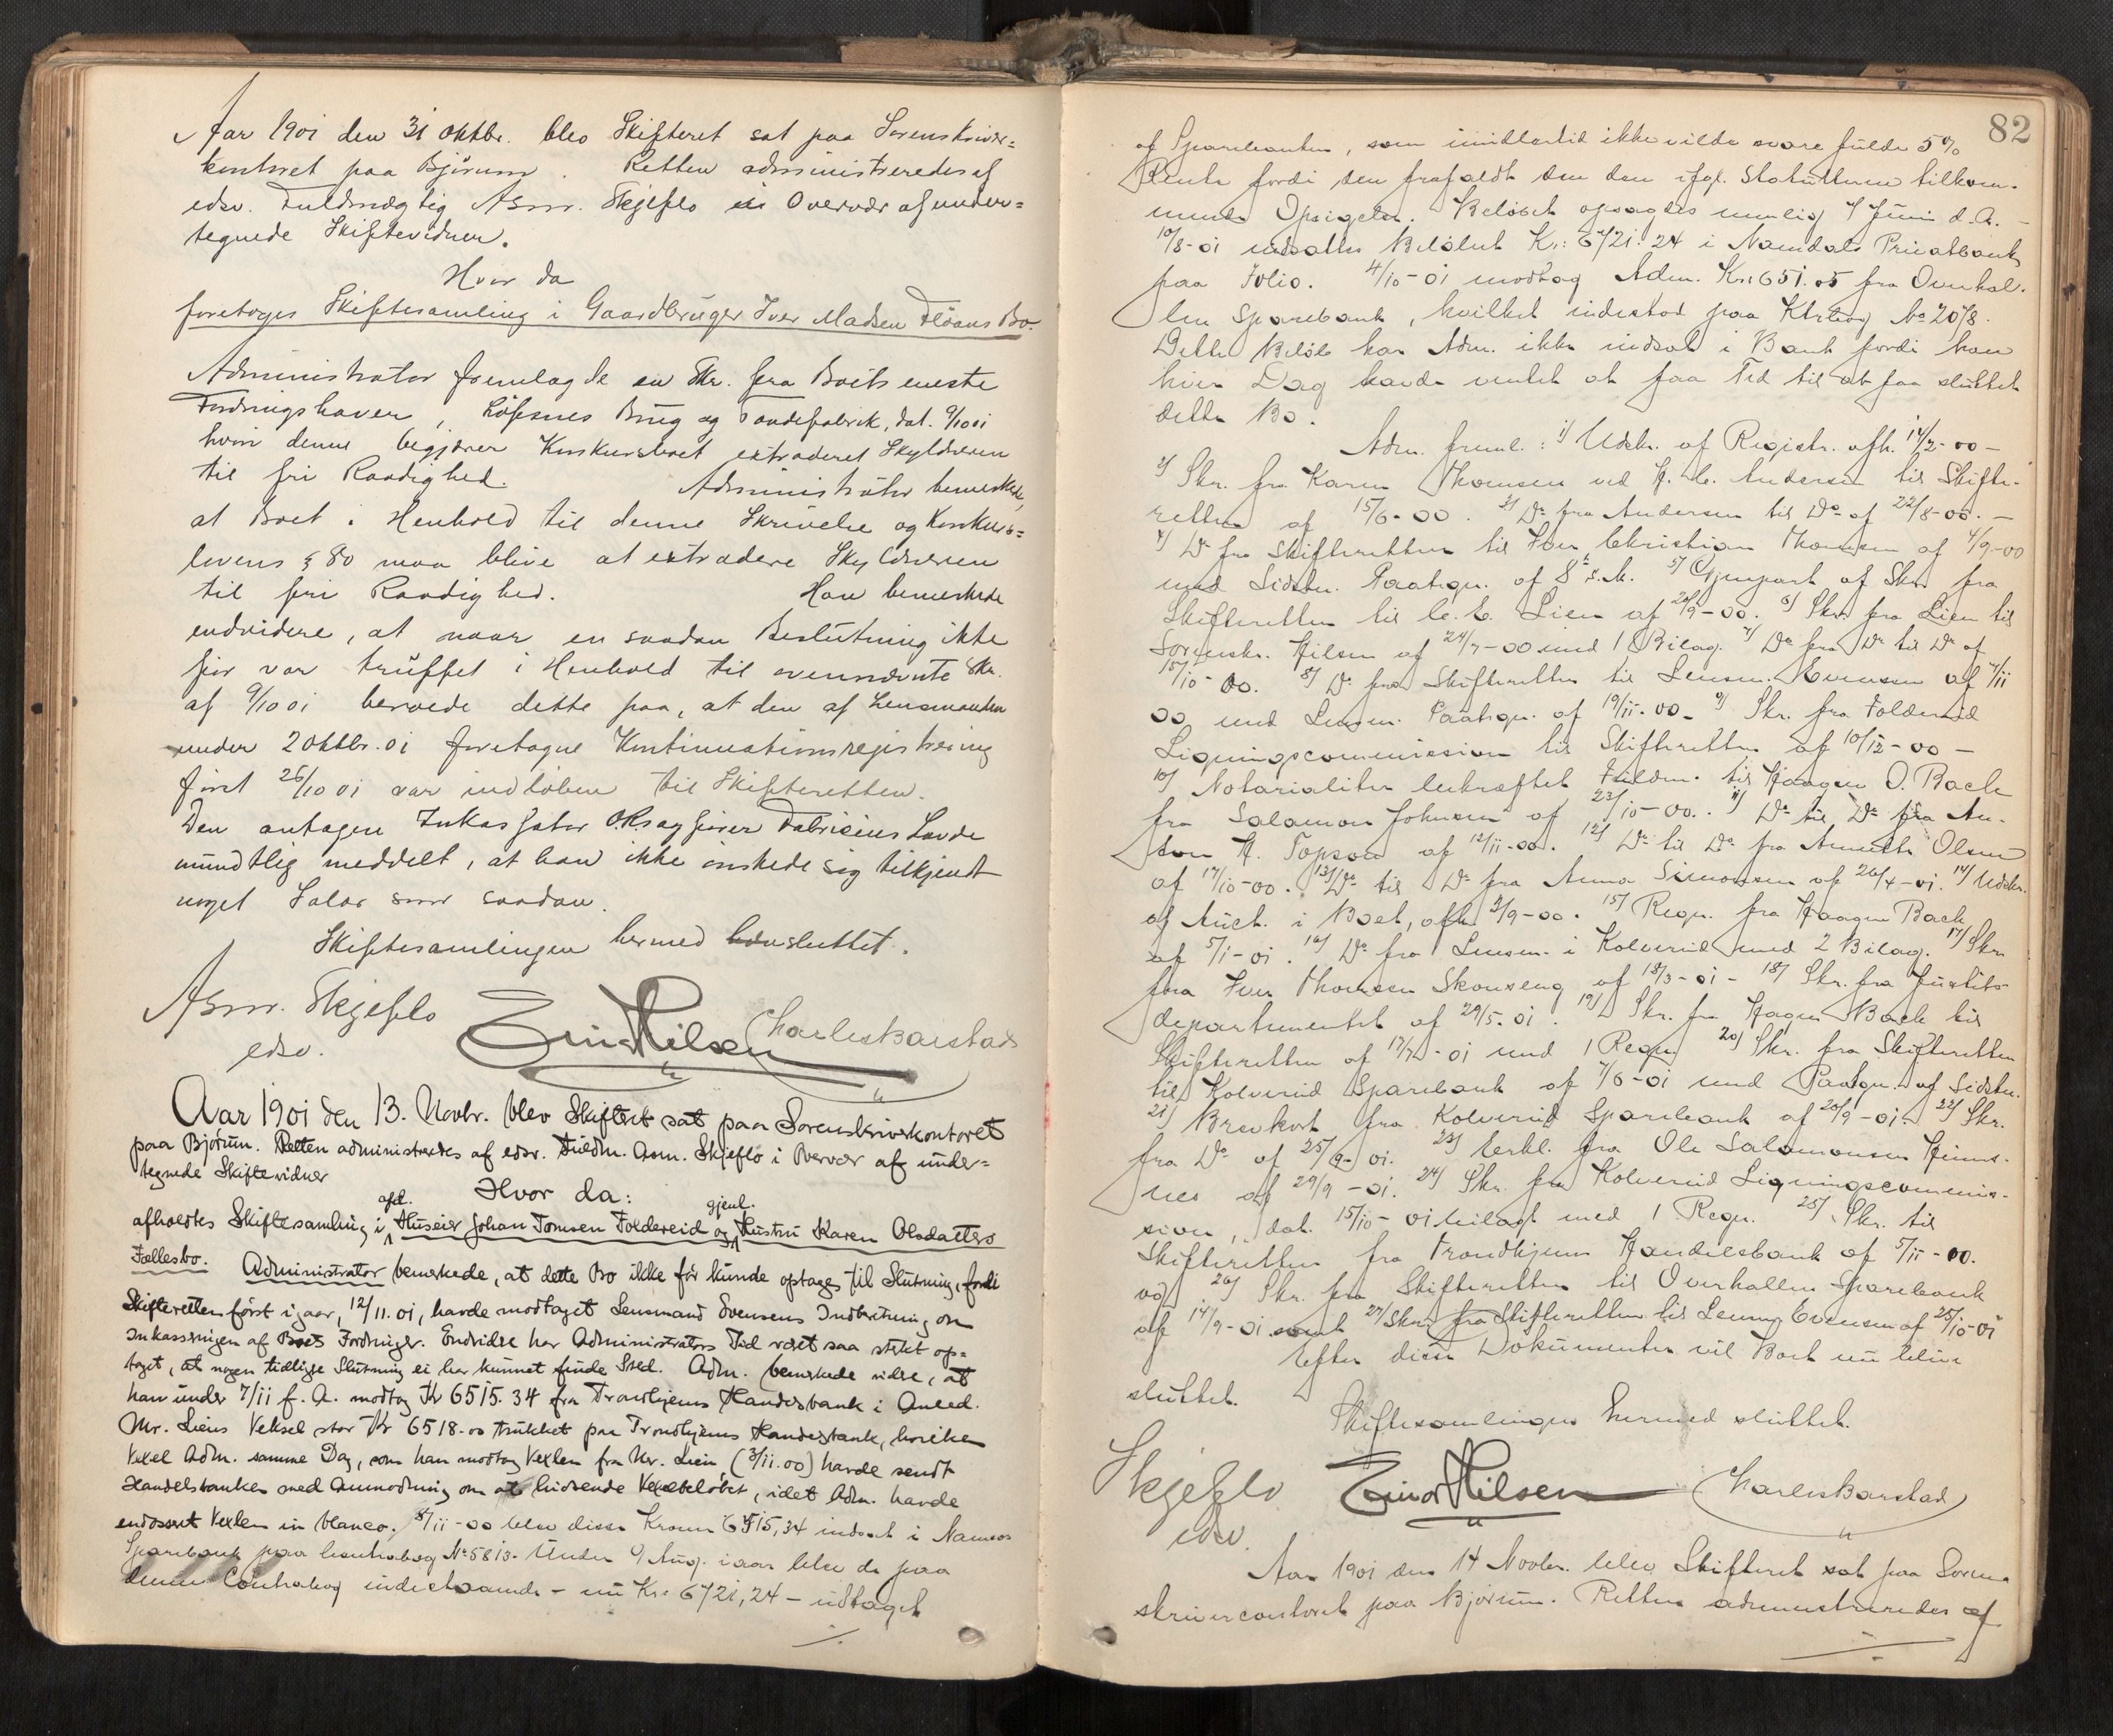 Aar 1901 den 31 Oktbr. blev Skifteret sat paa Sorenskriver=
kontoret paa Bjørum. Retten administreredes af
edsv. Fuldmægtig Asm. Skjeflo i Overvær af under=
tegnede Skiftevidner.
Hvor da
foretoges Skiftesamling i Gaardbruger Iver Madsen Fløans Bo.
Administrator fremlagde en Skr. fra Boets eneste
Fordringshaver, Løfsnes Brug og Tøndefabrik, dat. 9/10 01
hvori denne begjærer Konkursboet extraderet Skyldneren
til fri Raadighed. Administrator bemerkede,
at Boet i Henhold til denne Skrivelse og Konkurs=
lovens § 80 maa blive at extradere Skyldneren
til fri Raadighed. Han bemerkede
endvidere, at naar en saadan Beslutning ikke
før var truffet i Henhold til ovennævnte Skr.
af 9/10 01 beroede dette paa, at den af Lensmanden
under 2 Oktbr. 01 foretagne Kontinuationsregistrering
først 26/10 01 var indløben til Skifteretten.
Den antagne Inkassator O.R.sagfører Fabricius havde
mundtlig meddelt, at han ikke ønskede sig tilkjendt
noget Salær som saadan.
Skiftesamlingen hermed sluttet.
Asm. Skjeflo Einar Hilsen Charles Barstad
edsv.
Aar 1901 den 13. Novbr. blev Skifteret sat paa Sorenskriverkontoret
paa Bjørum. Retten administredes af edsv. Fuldm. Asm. Skjeflo i Overvær af under=
tegnede Skiftevidner
Hvor da:
afd. gjenl.
afholdtes Skiftesamling i Huseier Johan Tomsen Foldereid og Hustru Karen Olsdatters
Fællesbo. Administrator bemerkede, at dette Bo ikke før kunde optages til Slutning, fordi
Skifteretten først igaar, 12/11. 01, havde modtaget Lensmand Evensens Indberetning om
Inkasseringen af Boets Fordringer. Endvidere har Administrators Tid været saa sterkt op=
taget, at nogen tidlige Slutning ei har kunnet finde Sted. Adm. bemerkede videre, at
han under 7/11 f. A. modtog Kr 6515.34 fra Trondhjems Handelsbank i Anled.
Mr. Liens Veksel stor Kr 6518.00 trukket paa Trondhjems Handelsbank, hvilken
Vexel Adm. samme Dag, som han modtog Vexlen fra Mr. Lien, (3/11.00) havde sendt
Handelsbanken med Anmodning om at indsende Vexelbeløbet, idet Adm. havde
endosseret Vexlen in blanco. 8/11-00 blev disse Kroner 6515,34 indsat i Namsos
Sparebank paa Contrabog No 5813. Under 9 Aug. i aar blev de paa
denne Contrabog indestaaende - nu Kr: 6721,24 - udtaget
82
af Sparebanken, som imidlertid ikke vilde svare fulde 5%
Rente fordi den frafaldt den den ifgl. Statutterne tilkom-
mende Opsigelse. Beløbet opsagdes nemlig 7 Juni d. A. -
10/8-01 indsattes Beløbet Kr: 6721.24 i Namdals Privatbank
paa Folio. 4/10-01 modtog Adm. Kr: 651.05 fra Overhal-
len Sparebank, hvilket indestod paa Ktrbog No 2078.
Dette Beløb har Adm. ikke indsat i Bank fordi han
hver Dag havde ventet at faa Tid til at faa sluttet
dette Bo.
Adm. freml.: 1) Udskr. af Registr. afh. 14/2-00 -
2) Skr. fra Karen Thomsen ved Andersen til Skifte-
retten af 15/6-00. 3) Do fra Andersen til Do af 22/8-00. -
4) Do fra Skifteretten til Iver Christian Thomsen af 4/9-00
med Sidstn. Paategn. af 8 s. M. 5) Gjenpart af Skr. fra
Skifteretten til Lien af 20/9-00. 6) Skr. fra Lien til
Sorenskr. Hilsen af 24/9-00 med 1 Bilag. 7) Do fra Do til Do af
/10-00. 8) Do fra Skifteretten til Lensm. Evensen af 7/11
00 med Lensm. Paategn. af 19/11-00. 9) Skr. fra Foldereid
Ligningscommission til Skifteretten af 10/12-00 -
10) Notarialiter bekræftet Fuldm. til Haagen O. Bach
fra Salamon Johnsen af 23/10-00. 11) Do til Do fra An-
ton Topsen af 12/11-00. 12) Do til Do fra Anneth Olsen
af 17/10-00. 13) Do til Do fra Anna Simonsen af 26/4-01. 14) Udskr.
af Auct. i Boet, afh. 3/9-00. 15) Regn. fra Haagen Bach
af 5/1-01. 16) Do fra Lensm. i Kolvereid med 2 Bilag. 17) Skr.
fra Iver Thomsen Skonseng af 18/3-01 - 18) Skr. fra Justits-
departementet af 29/5.01. 19) Skr. fra Hagen Bach til
Skifteretten af 17/7-01 med 1 Regn. 20) Skr. fra Skifteretten
til Kolvereid Sparebank af 7/6-01 med Paategn. af Sidstn.
21) Brevkort fra Kolvereid Sparebank af 20/9-01. 22) Skr.
fra Do af 25/9-01. 23) Erkl. fra Ole Salamonsen
nes af 29/9-01. 24) Skr. fra Kolvereid Ligningscommis-
sion, dat. 15/10-01 bilagt med 1 Regn. 25) Skr. til
Skifteretten fra Trondhjems Handelsbank af 5/11-00.
og 26) Skr. fra Skifteretten til Overhallen Sparebank
af 14/9-01 samt 27) Skr. fra Skifteretten til Lensm. Evensen af 25/10-01
Efter disse Dokumenter vil Boet nu blive
sluttet.
Skiftesamlingen hermed sluttet.
Skjeflo Einar Hilsen Charles Barstad
edsv.
Aar 1901 den 14 Novbr. blev Skifteret sat paa Soren-
skrivercontoret paa Bjørum. Retten administreredes af